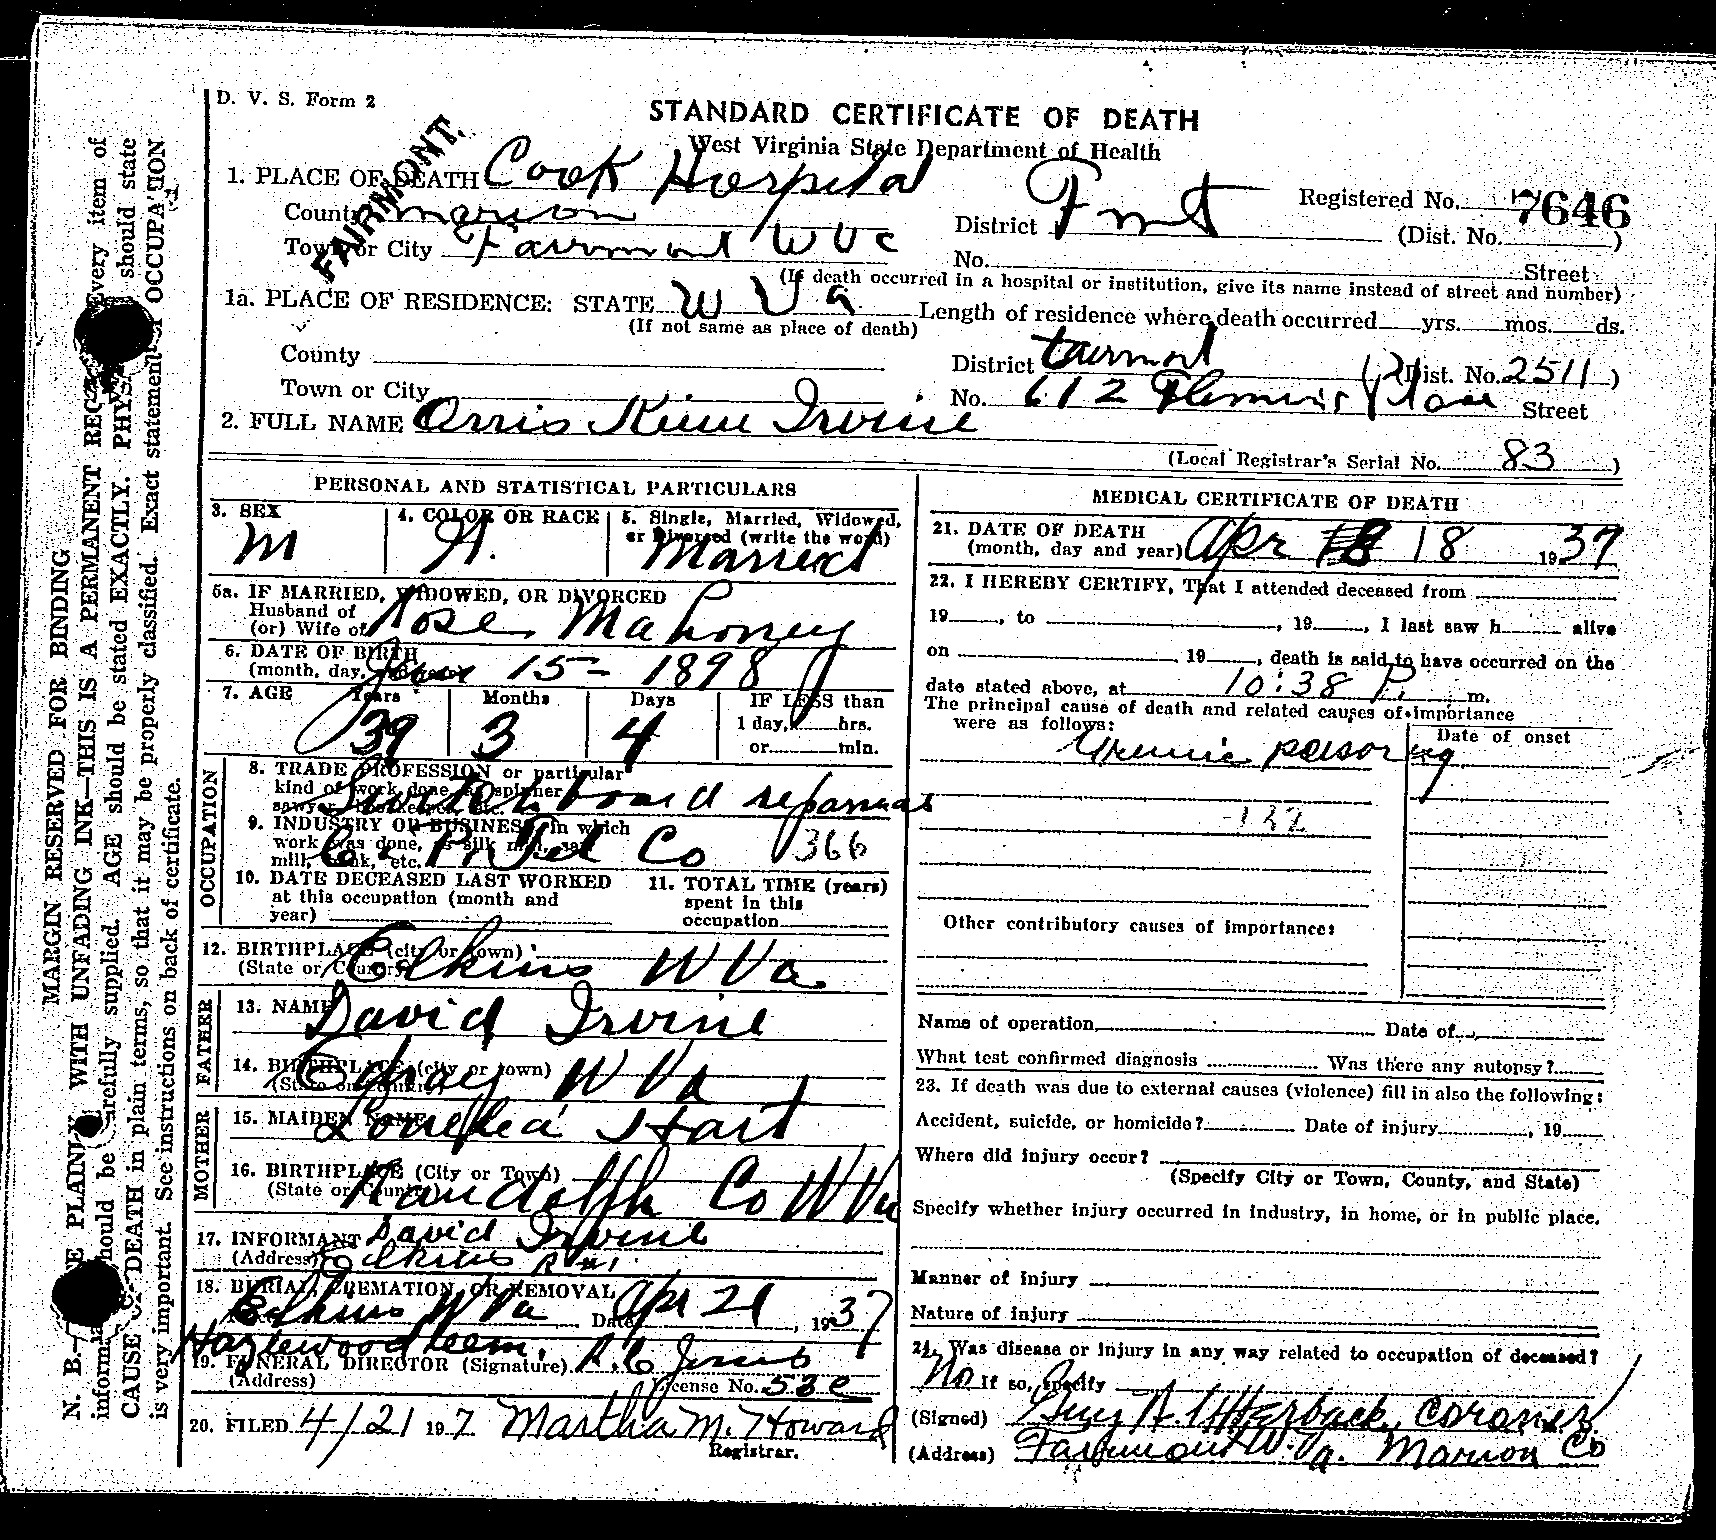 D. V. S. Form 2
STANDARD CERTIFICATE OF DEATH
West Virginia State Department of Health
FAIRMONT.
1. PLACE OF DEATH Cook Hospital
Registered No. 7646
County Marion
District Fmt
(Dist. No. )
Town or City Fairmont W Va
No. Street
(If death occurred in a hospital or institution, give its name instead of street and number)
1a. PLACE OF RESIDENCE: STATE W Va
Length of residence where death occurred yrs. mos. ds.
(If not same as place of death)
County
District Fairmont (Dist. No. 2511 )
Town or City
No. 612 Street
2. FULL NAME Orris Irvine
(Local Registrar's Serial No. 83 )
PERSONAL AND STATISTICAL PARTICULARS
3. SEX M
4. COLOR OR RACE W.
5. Single, Married, Widowed, or Divorced (write the word) Married
5a. IF MARRIED, WIDOWED, OR DIVORCED
Husband of
(or) Wife of Rose Mahoney
6. DATE OF BIRTH
(month, day, 15 - 1898
7. AGE Years Months Days IF LESS than
39 3 4 1 day, hrs.
or min.
OCCUPATION
8. TRADE PROFESSION or particular
kind of work done, as spinner,
sawyer, bookkeeper, etc. Switchboard repairman
9. INDUSTRY OR BUSINESS in which
work was done, as silk mill, saw
mill, bank, etc. C. & P. Tel Co 366
10. DATE DECEASED LAST WORKED
at this occupation (month and
year)
11. TOTAL TIME (years)
spent in this
occupation
12. BIRTHPLACE (city or town)
(State or Country) Elkins W Va.
FATHER
13. NAME David Irvine
14. BIRTHPLACE (city or town)
(State or Country) W Va
MOTHER
15. MAIDEN NAME Hart
16. BIRTHPLACE (City or Town)
(State or Country) Randolph Co W Va
17. INFORMANT David Irvine
(Address) Elkins
18. BURIAL, CREMATION, OR REMOVAL
Elkins W Va Date Apr 21, 1937
Hazlewood Cem.
19. FUNERAL DIRECTOR (Signature)
(Address) License No.
20. FILED 4/21 1937 Martha M. Howard
Registrar.
MEDICAL CERTIFICATE OF DEATH
21. DATE OF DEATH
(month, day and year) Apr 18 1937
22. I HEREBY CERTIFY, That I attended deceased from
19 , to , 19 , I last saw h alive
on , 19 , death is said to have occurred on the
date stated above, at 10:38 P. m.
The principal cause of death and related causes of importance
were as follows:
Date of onset
Uremic poisoning
132
Other contributory causes of importance:
Name of operation Date of
What test confirmed diagnosis Was there any autopsy?
23. If death was due to external causes (violence) fill in also the following:
Accident, suicide, or homicide? Date of injury , 19
Where did injury occur?
(Specify City or Town, County, and State)
Specify whether injury occurred in industry, in home, or in public place.
Manner of Injury
Nature of injury
24. Was disease or injury in any way related to occupation of deceased?
No If so, specify
(Signed) Coroner
(Address) Fairmont W. Va. Marion Co
MARGIN RESERVED FOR BINDING
N. B.— PLAINLY WITH UNFADING INK—THIS IS A PERMANENT Every item of
should be carefully supplied. AGE should be stated EXACTLY. should state
CAUSE OF DEATH in plain terms, so that it may be properly classified. Exact statement OCCUPATION
is very important. See instructions on back of certificate.